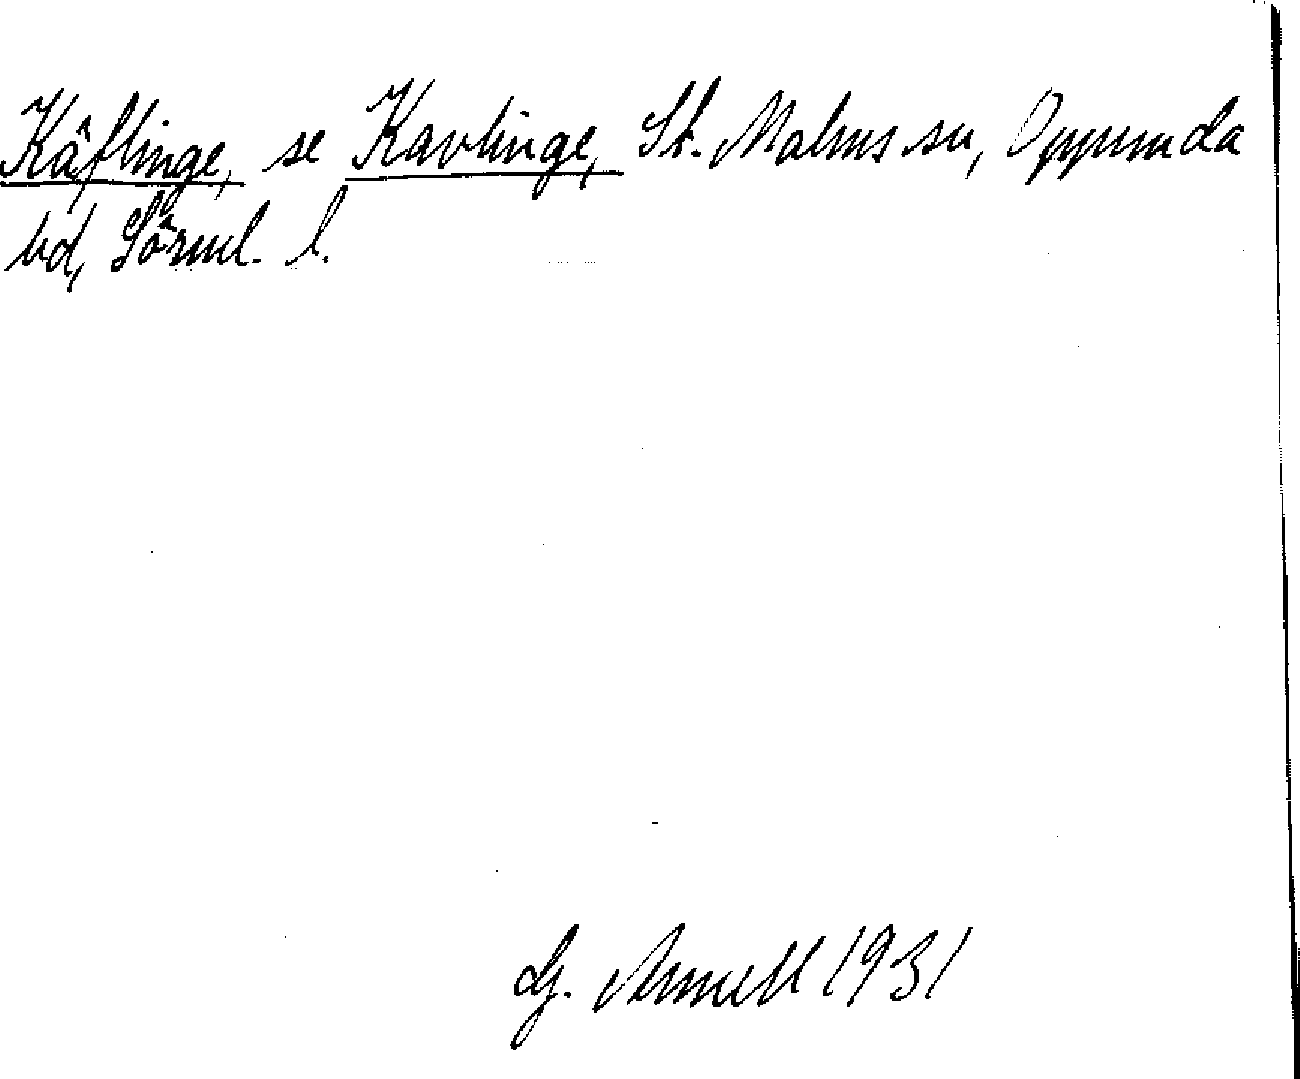 Käflinge, se Kavlinge, St. Malms sn, Oppunda
hd, Sörml. l.
G. Arnell 1931